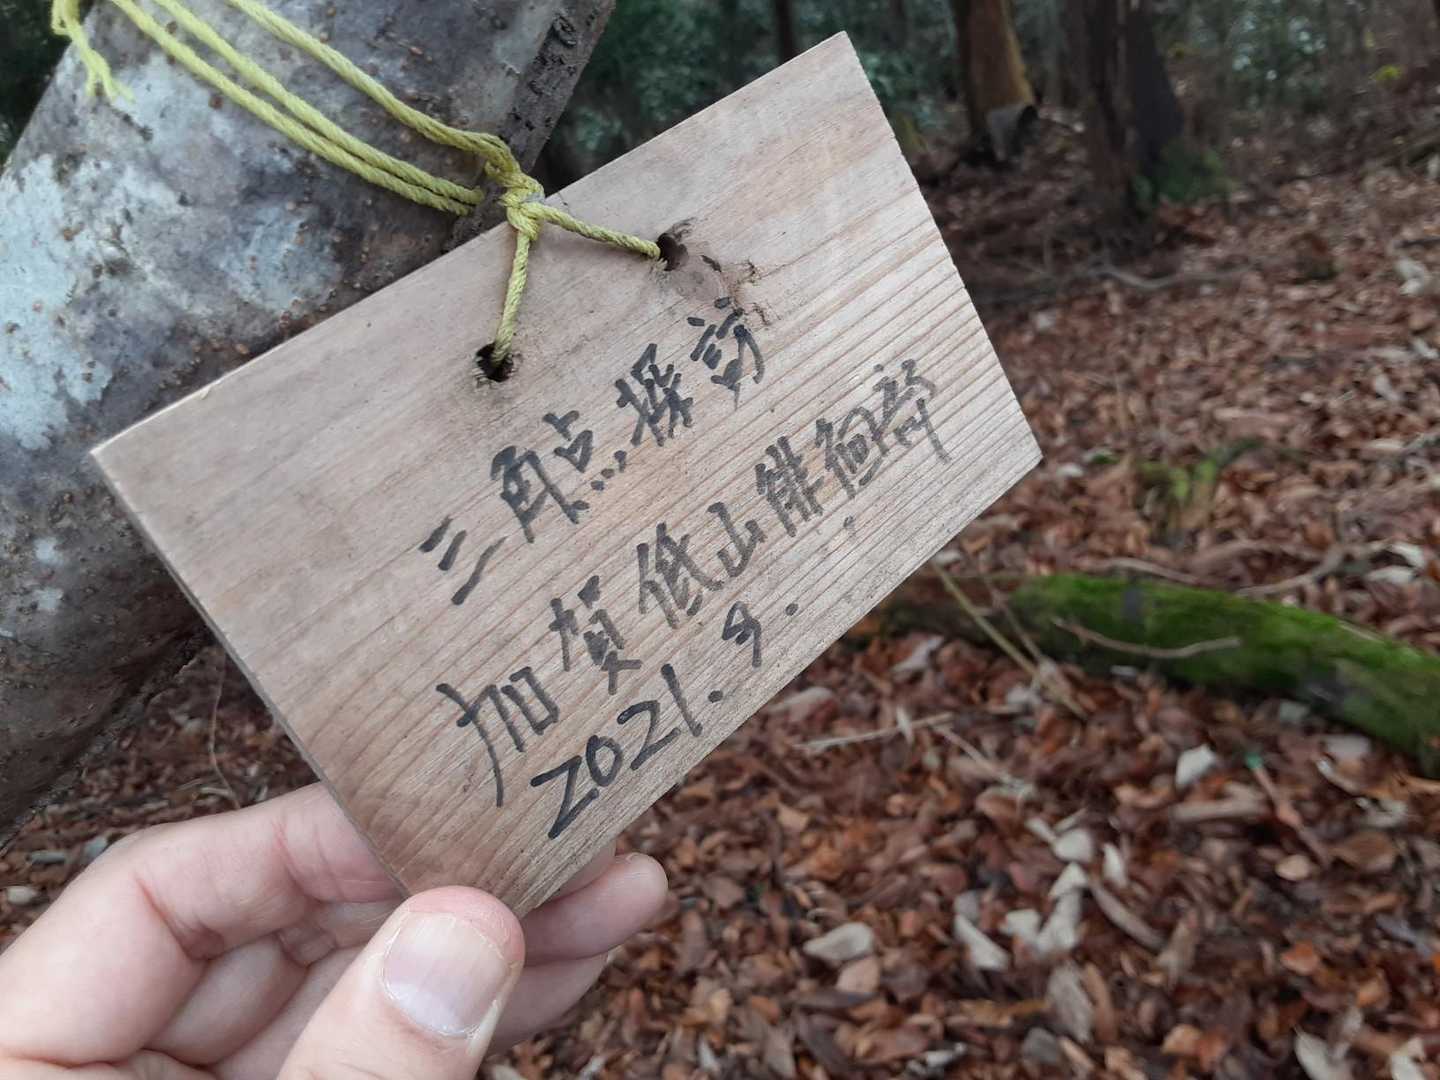 三角点探訪
加賀低山徘徊部
2021.9.